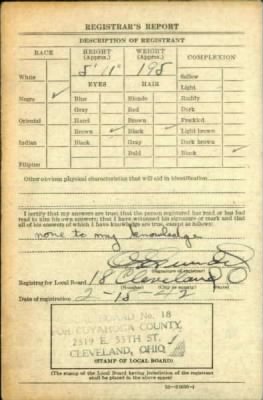 REGISTRAR'S REPORT
DESCRIPTION OF REGISTRANT
RACE HEIGHT (Approx.) WEIGHT (Approx.) COMPLEXION
White 5' 11" 195 Sallow
EYES HAIR Light
Negro ✓ Blue Blonde Ruddy
Gray Red Dark
Oriental Hazel Brown Freckled
Brown ✓ Black ✓ Light brown
Indian Black Gray Dark brown
Bald Black ✓
Filipino
Other obvious physical characteristics that will aid in identification
I certify that my answers are true; that the person registered has read or has had
read to him his own answers; that I have witnessed his signature or mark and that
all of his answers of which I have knowledge are true, except as follows:
none to my knowledge
(Signature of registrar)
Registrar for Local Board 18 Cleveland O
(Number) (City or county) (State)
Date of registration 2-15-42
BOARD No. 18
FOR CUYAHOGA COUNTY
2519 E. 55TH ST.
CLEVELAND, OHIO
(STAMP OF LOCAL BOARD)
(The stamp of the Local Board having jurisdiction of the registrant
shall be placed in the above space)